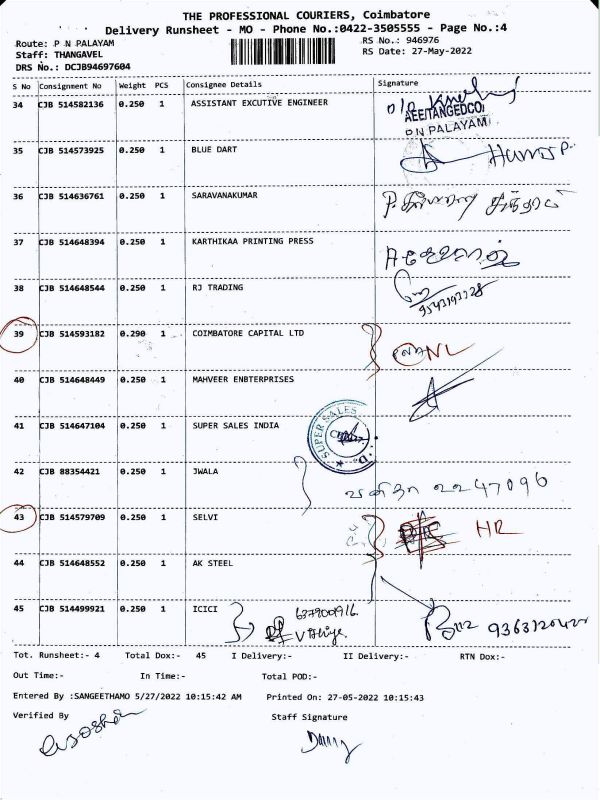 THE PROFESSIONAL COURIERS, Coimbatore
Delivery Runsheet - MO - Phone No.:0422-3505555 - Page No.:4
Route: P N PALAYAM
Staff: THANGAVEL
DRS No.: DCJB94697604
RS No.: 946976
RS Date: 27-May-2022
S No Consignment No Weight PCS Consignee Details Signature
34 CJB 514582136 0.250 1 ASSISTANT EXCUTIVE ENGINEER
AEE/TANGEDCO
P N PALAYAM
35 CJB 514573925 0.250 1 BLUE DART
36 CJB 514636761 0.250 1 SARAVANAKUMAR
37 CJB 514648394 0.250 1 KARTHIKAA PRINTING PRESS
38 CJB 514648544 0.250 1 RJ TRADING
39 CJB 514593182 0.290 1 COIMBATORE CAPITAL LTD
40 CJB 514648449 0.250 1 MAHVEER ENBTERPRISES
41 CJB 514647104 0.250 1 SUPER SALES INDIA
SUPER SALES
42 CJB 88354421 0.250 1 JWALA
வனிதா 2247096
43 CJB 514579709 0.250 1 SELVI HR
44 CJB 514648552 0.250 1 AK STEEL
45 CJB 514499921 0.250 1 ICICI
Tot. Runsheet:- 4 Total Dox:- 45 I Delivery:- II Delivery:- RTN Dox:-
Out Time:- In Time:- Total POD:-
Entered By :SANGEETHAMO 5/27/2022 10:15:42 AM Printed On: 27-05-2022 10:15:43
Verified By Staff Signature